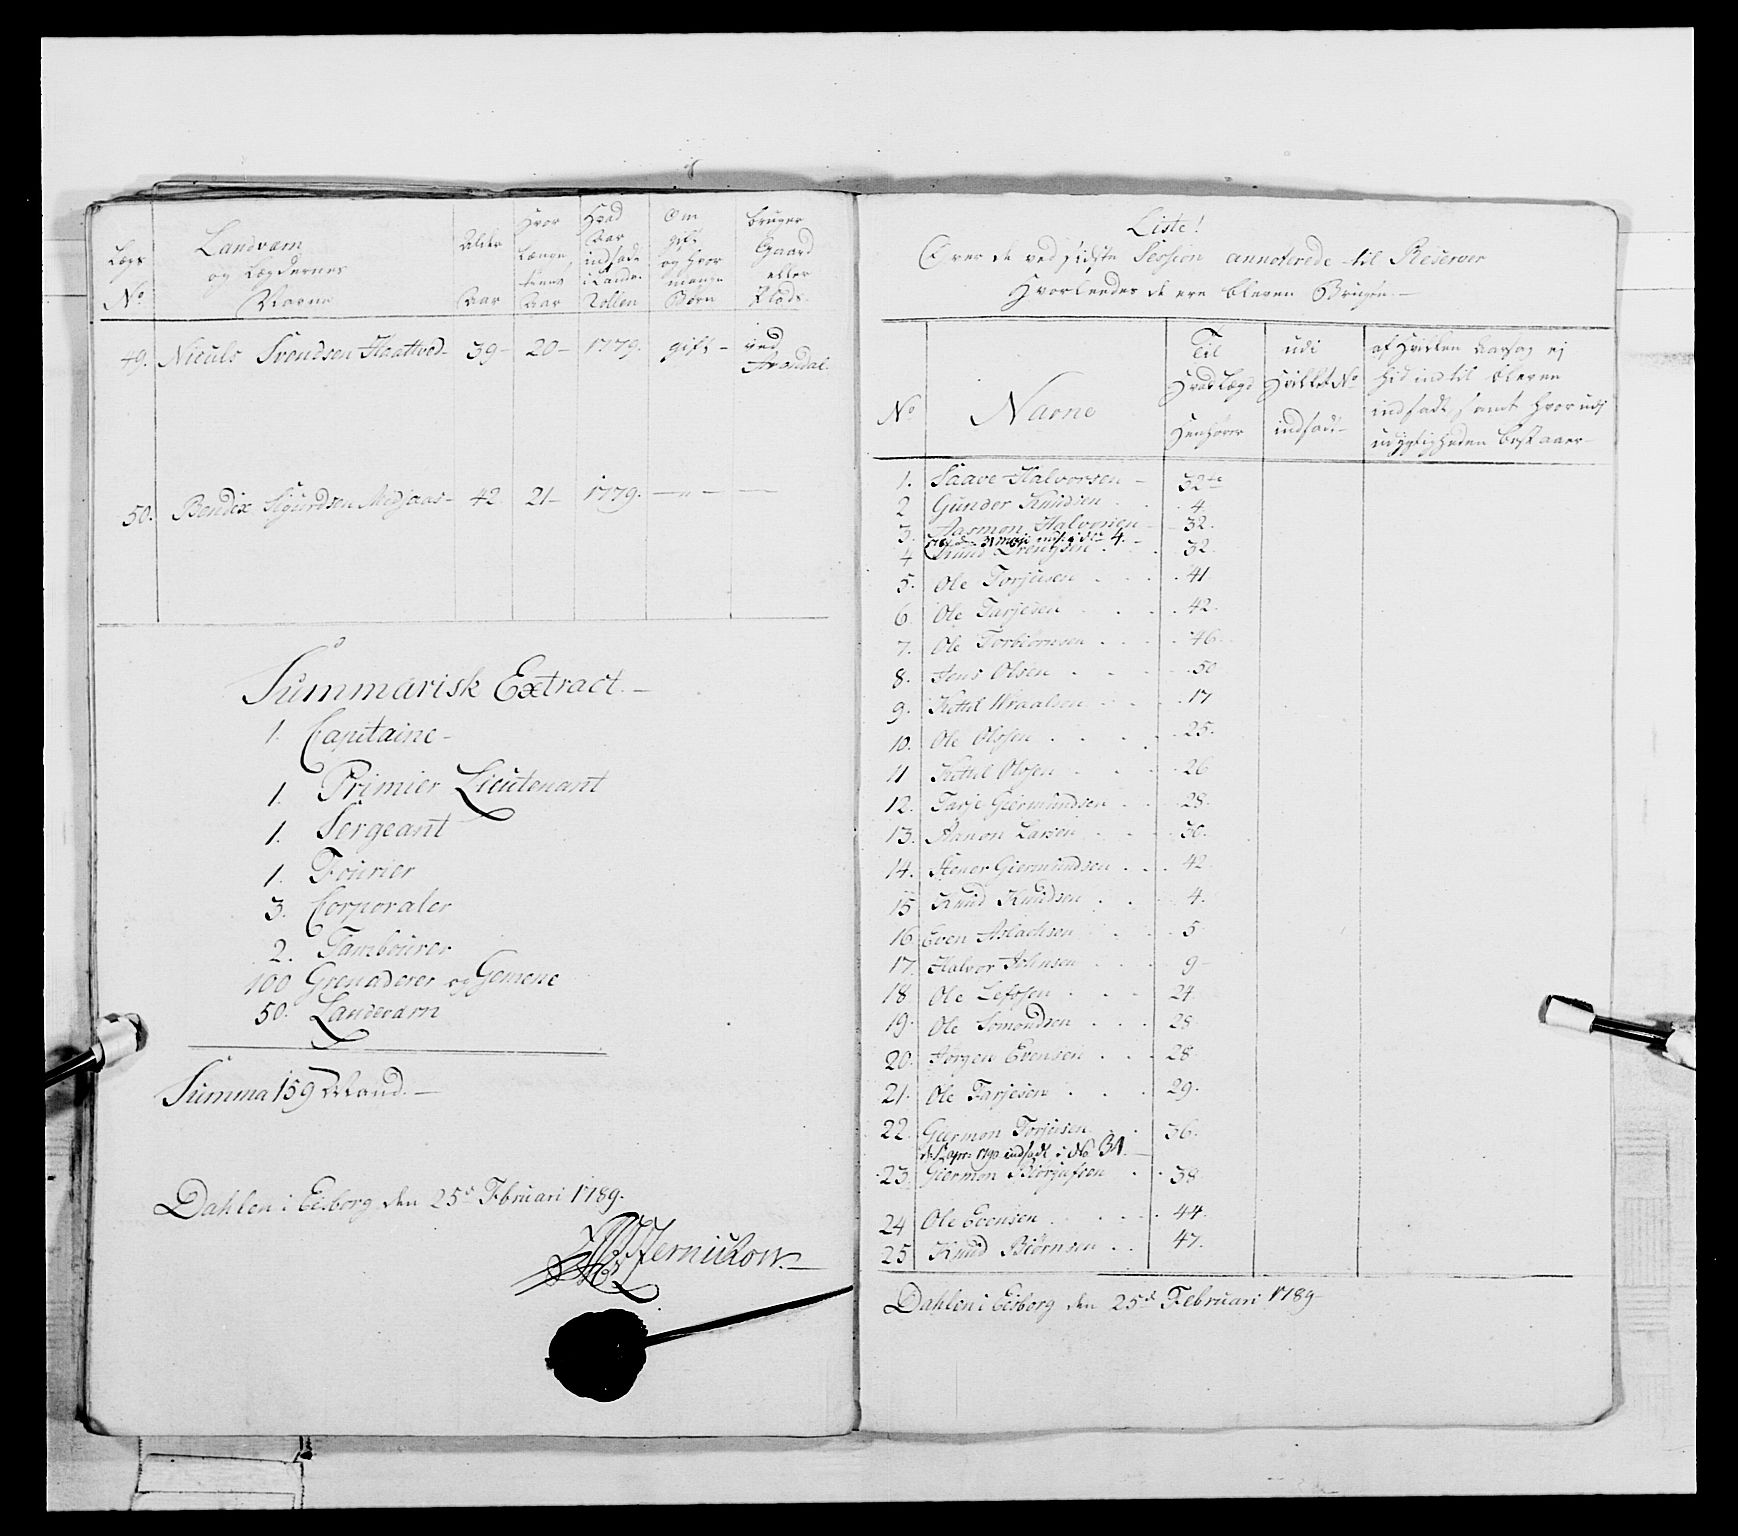 Lægs No | Landværn og Lægdernes Navne | Alder Aar | Hvor Længe tient Aar | Hvad Aar indsadt i Lande Rollen | Om gift og hvor mange Børn | bruger Gaard eller Plads.
49. Niculs Svendsen Haattved - 39 - 20 - 1779. gift - ved Arendal.
50. Bendix Sigurdsen Midjaas - 42. 21 - 1779. - " - -
Summarisk Extract. -
1. Capitaine -
1. Primier Lieutenant
1. Sergeant
1. Fourier
3. Corporaler
2. Tambourer
100 Grenaderer og Gemene
50. Landeværn
Summa 159 Mand. -
Dahlen i Eidsborg den 25de Februari 1789.
Liste!
Over de ved sidste Session annoterede til Reserver
Hvorledes de ere bleven Brugte. -
No | Navne | Til Hvad Lægd Henhører | udi Hvilket No indsadt - | af Hvilken Aarsag ej hid indtil bleven indsadt, samt hvor udi udygtigheden bestaaer -
1. Saave Halvorsen - 32te
2 Gunder Knudsen . 4.
3. Aasmon Halvorsen - 32.
4 Knud . . 32.
5. Ole Torjusen . . . 41.
6. Ole Tarjesen . . . 42.
7. Ole Torbiørnsen . . . 46.
8. Jens Olsen . . . 50
9. Kittil Wraalsen . . . 17
10. Ole Olsen . . . 25.
11 Kittil Olsen . . . 26
12. Tarje Giermundsen . . 28.
13. Aanon Larsen . . . 30.
14. Stener Giermundsen . . . 42
15 Knud Knudsen . . . 4.
16 Even Aslachsen . . . 5.
17. Halvor Johnsen . . . 9 -
18 Ole Lefsen . . . 24.
19. Ole Somondsen . . . 28
20. Jørgen Evensen . . . 28
21. Ole Tarjesen . . . 29.
22. Giermon Torjusen . . 36.
d: 1790 indsadt i No 31. -
23. Giermon . . 38
24 Ole Evensen . . . 44.
25 Knud Biørnsen . . 47.
Dahlen i Eidsborg den 25de Februari 1789 -